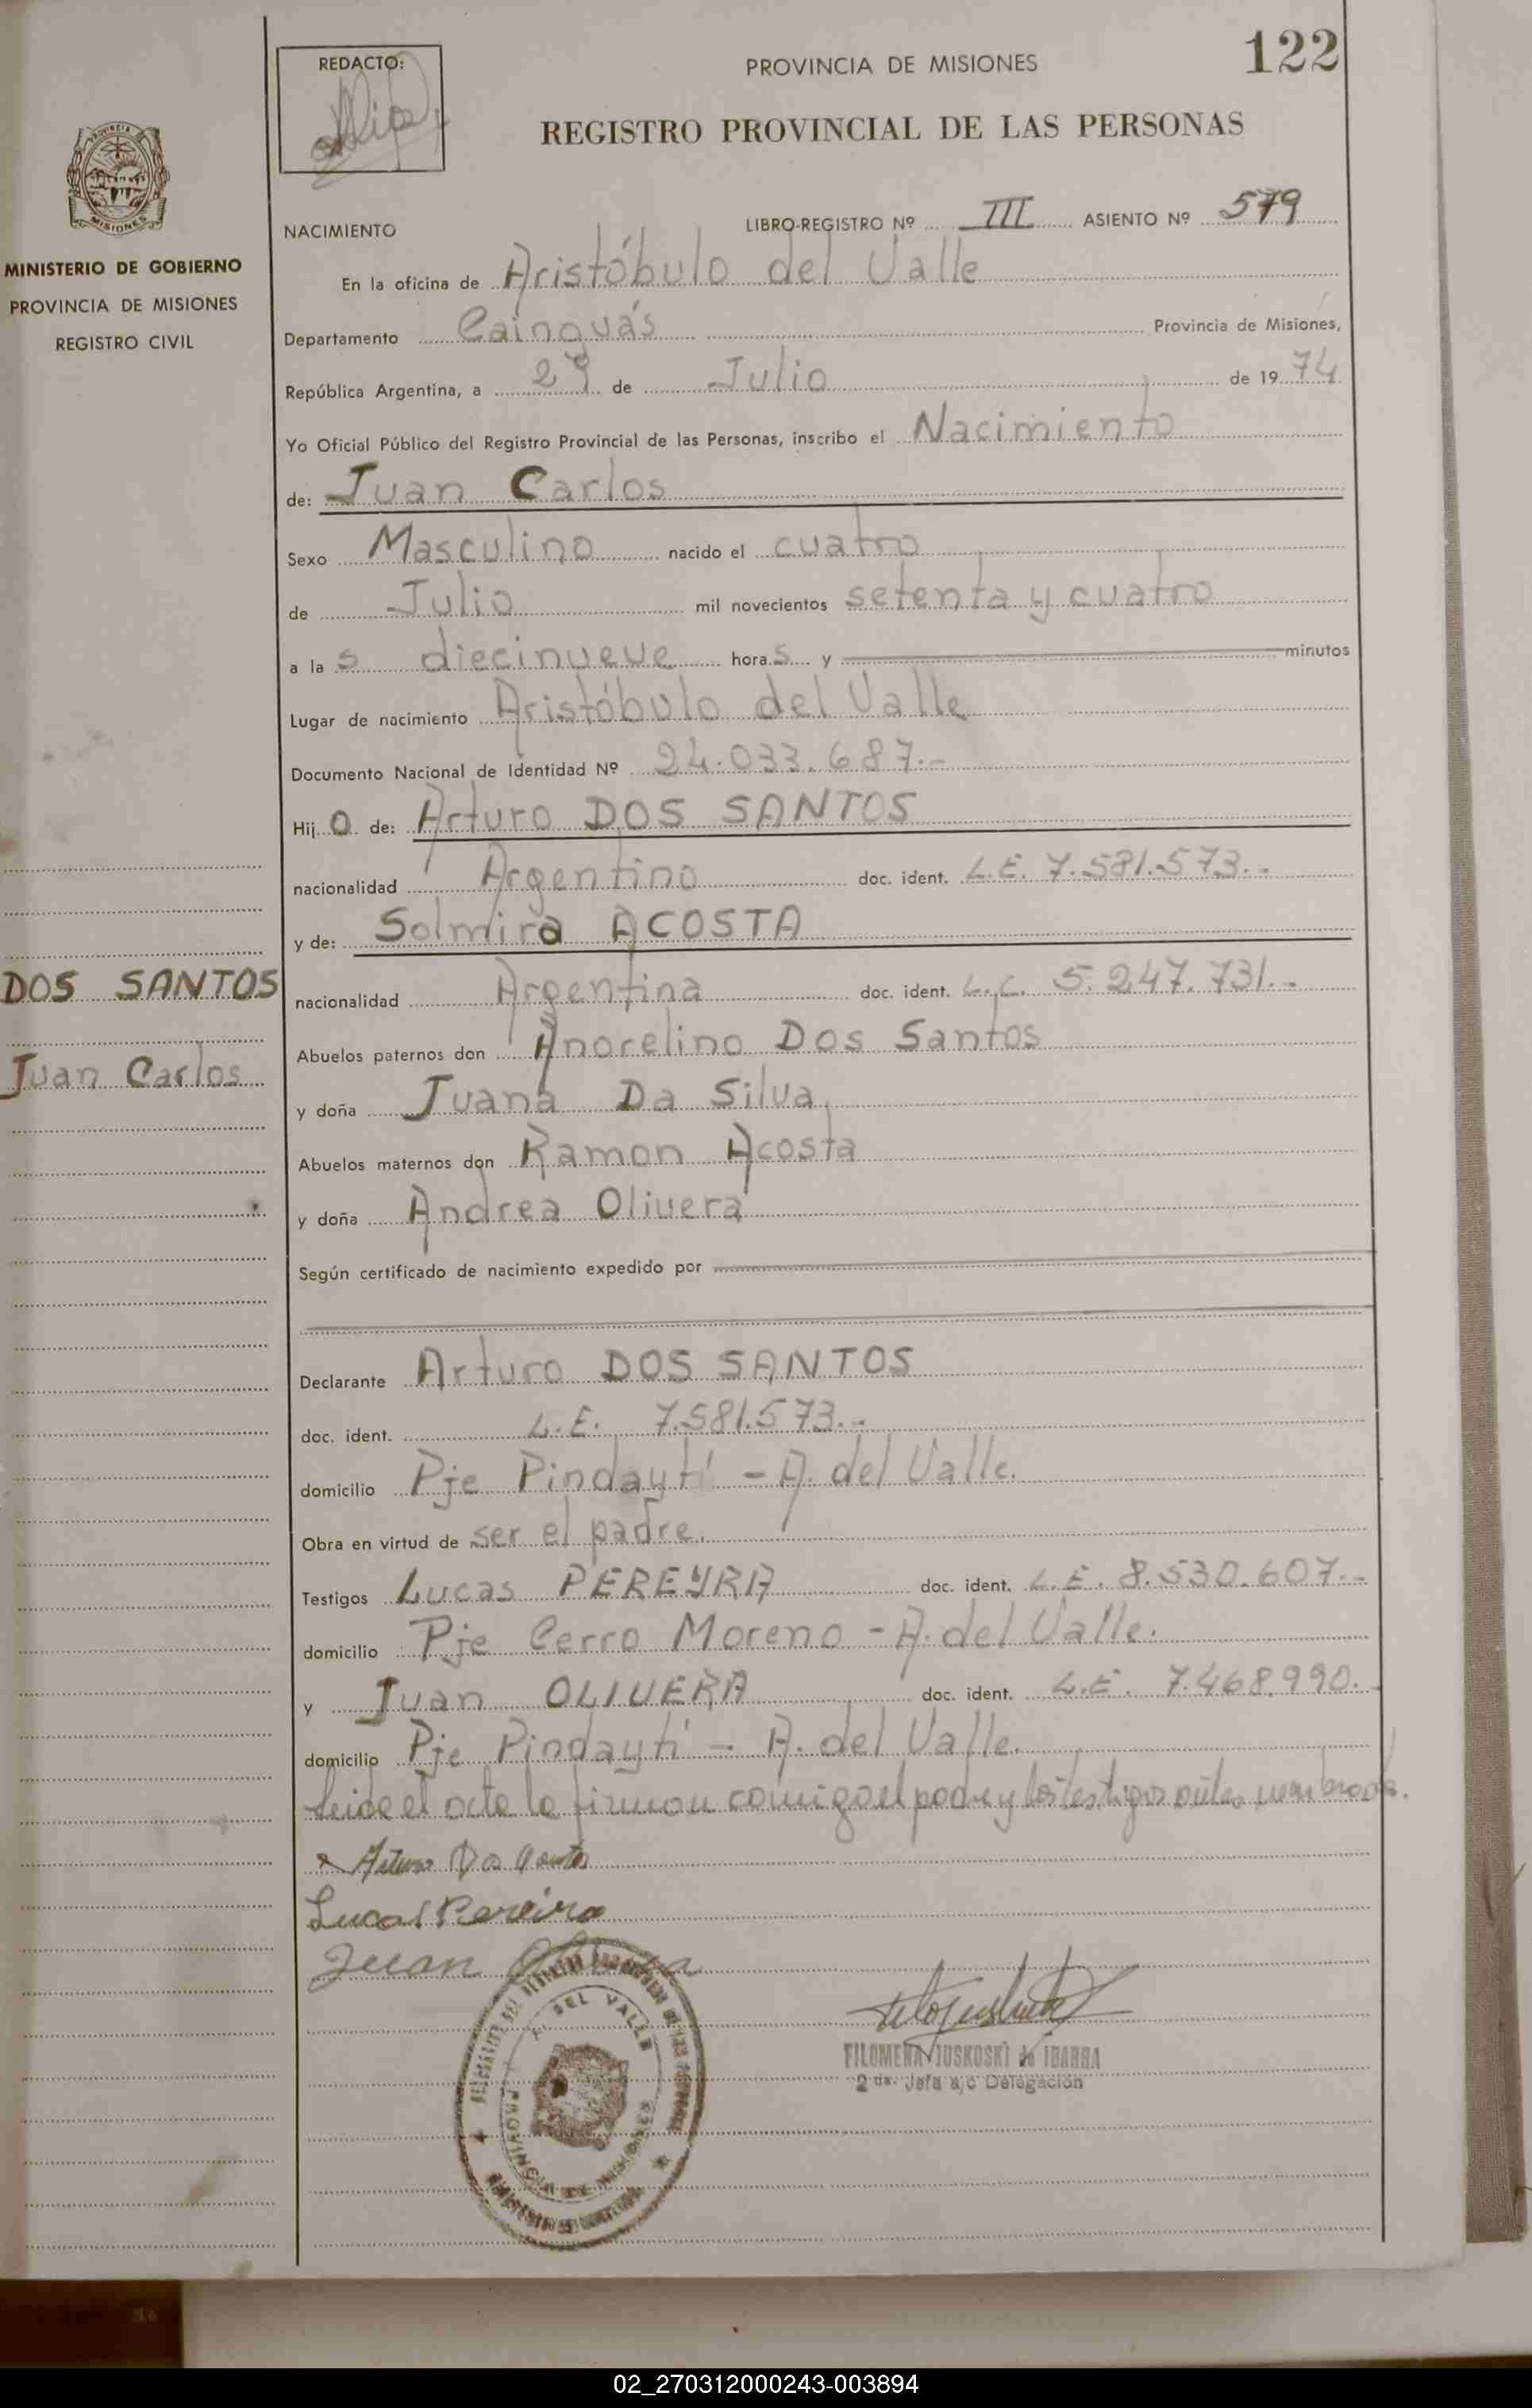 122
REDACTO:
PROVINCIA DE MISIONES
REGISTRO PROVINCIAL DE LAS PERSONAS
MISIONES
MINISTERIO DE GOBIERNO
PROVINCIA DE MISIONES
REGISTRO CIVIL
NACIMIENTO LIBRO-REGISTRO Nº III ASIENTO Nº 579
En la oficina de Aristóbulo del Valle
Departamento Cainguás Provincia de Misiones,
República Argentina, a 29 de Julio de 1974
Yo Oficial Público del Registro Provincial de las Personas, inscribo el Nacimiento
de: Juan Carlos
Sexo Masculino nacido el cuatro
de Julio mil novecientos setenta y cuatro
a las diecinueve horas y minutos
Lugar de nacimiento Aristóbulo del Valle
Documento Nacional de Identidad Nº 24.033.687.-
Hijo de: Arturo DOS SANTOS
nacionalidad Argentino doc. ident. L.E. 7.581.573.-
y de: Solmira ACOSTA
DOS SANTOS
nacionalidad Argentina doc. ident. L.C. 5.247.731.-
Abuelos paternos don Anorelino Dos Santos
Juan Carlos
y doña Juana Da Silva
Abuelos maternos don Ramon Acosta
y doña Andrea Olivera
Según certificado de nacimiento expedido por
Declarante Arturo DOS SANTOS
doc. ident. L.E. 7.581.573.-
domicilio Pje Pindaytí - A. del Valle.
Obra en virtud de ser el padre.
Testigos Lucas PEREYRA doc. ident. L.E. 8.530.607.-
domicilio Pje Cerro Moreno - A. del Valle.
y Juan OLIVERA doc. ident. L.E. 7.468.990.-
domicilio Pje Pindaytí - A. del Valle.
Leida el acta la firman comigo el padre y los testigos antes
Arturo Do Santos
Lucas Pereira
Juan
A. DEL VALLE
PROVINCIA DE MISIONES
FILOMENA JUSKOSKI de IBARRA
2 da. Jefa a/c Delegación
02_270312000243-003894